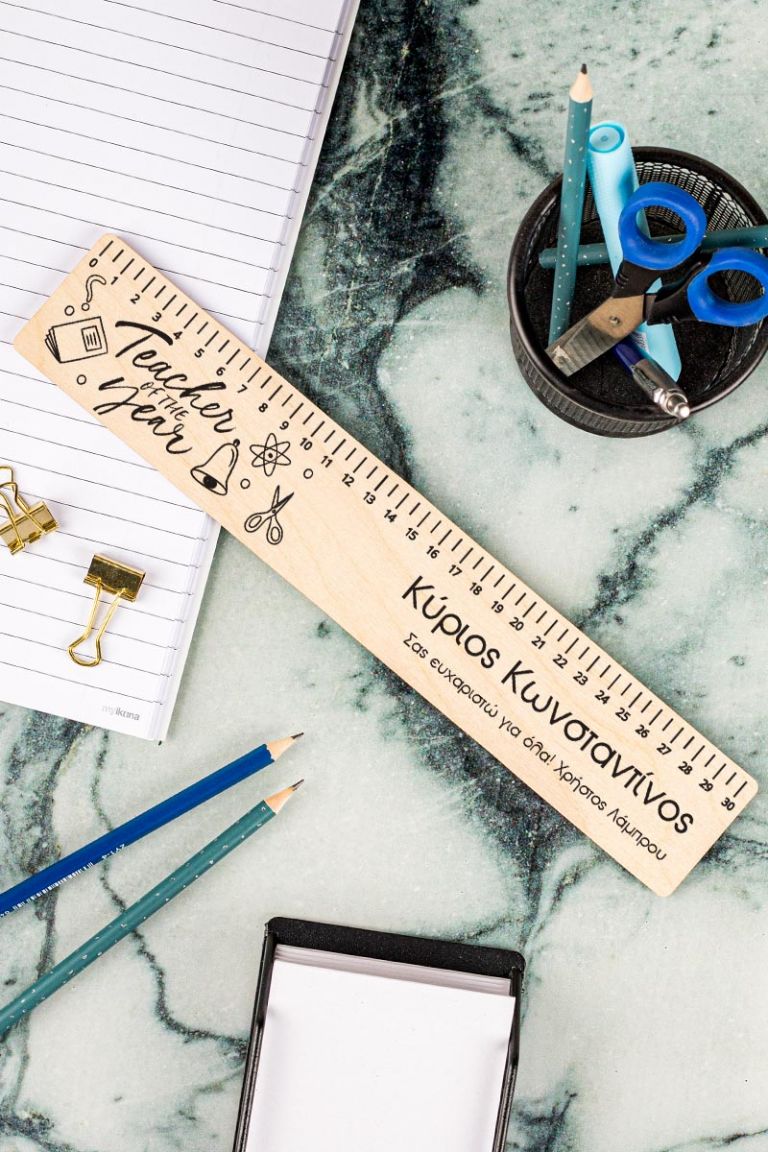 0 1 2 3 4 5 6 7 8 9 10 11 12 13 14 15 16 17 18 19 20 21 22 23 24 25 26 27 28 29 30
Teacher
OF THE
Year
Κύριος Κωνσταντίνος
Σας ευχαριστώ για όλα! Χρήστος Λάμπρου
myikona